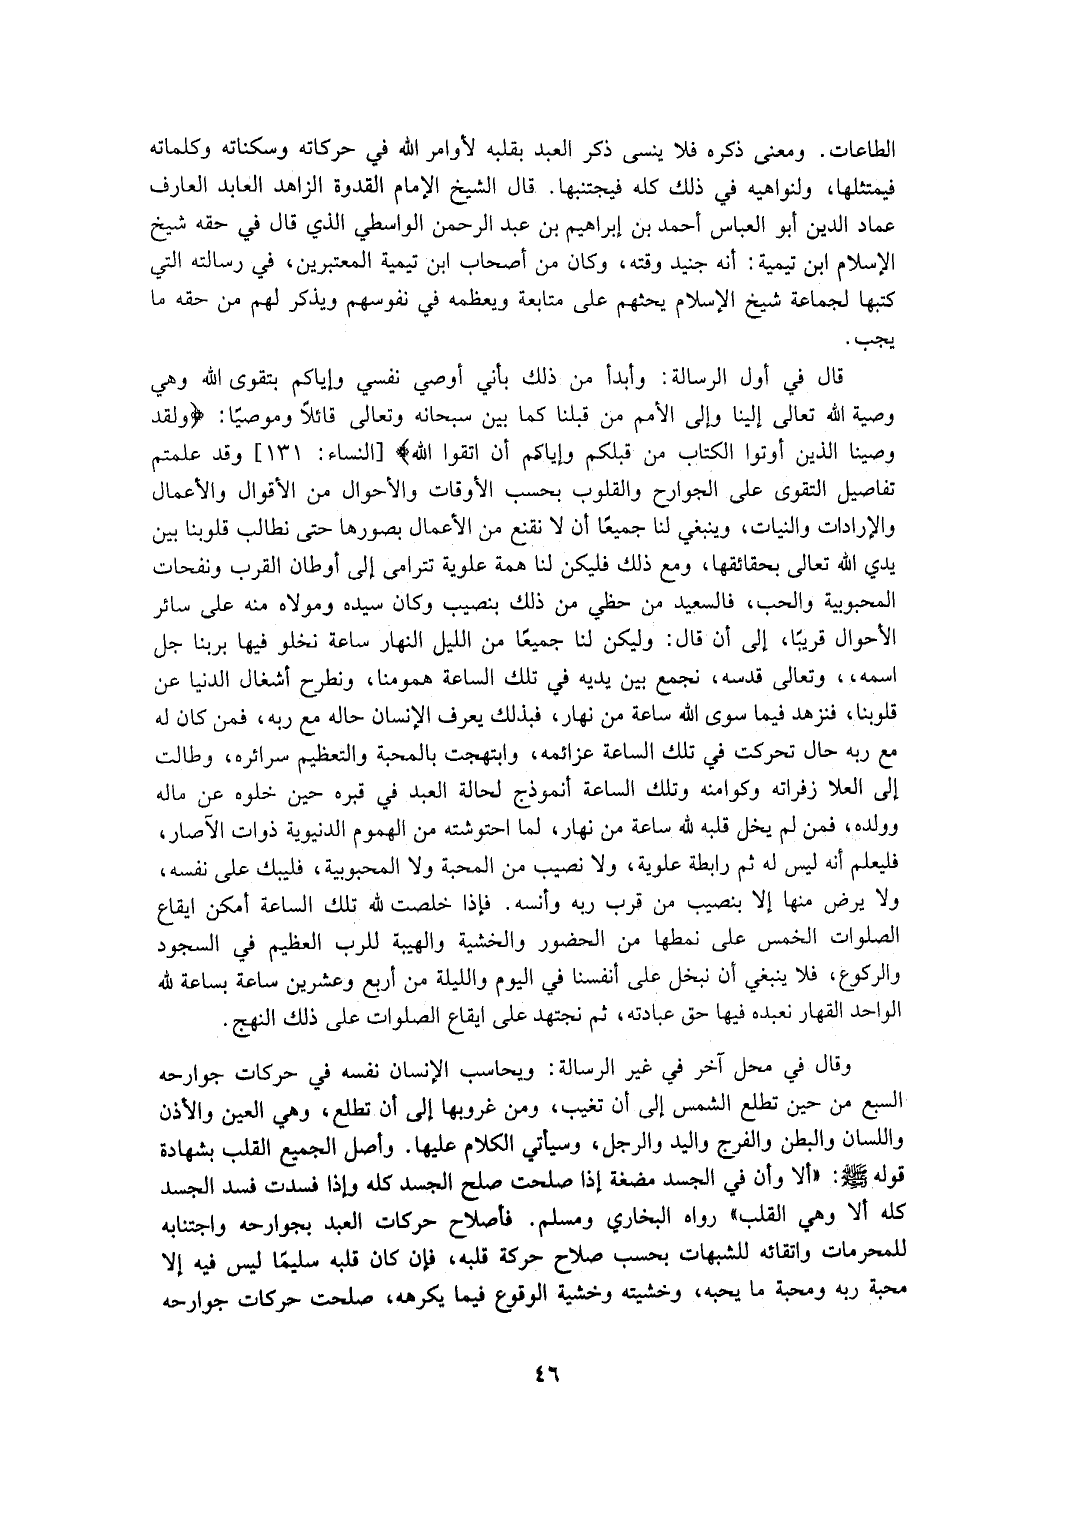 الطاعات. ومعنى ذكره فلا ينسى ذكر العبد بقلبه لأوامر الله في حركاته وسكناته وكلماته
فيمتثلها، ولنواهيه في ذلك كله فيجتنبها. قال الشيخ الإمام القدوة الزاهد العابد العارف
عماد الدين أبو العباس أحمد بن إبراهيم بن عبد الرحمن الواسطي الذي قال في حقه شيخ
الإسلام ابن تيمية: أنه جنيد وقته، وكان من أصحاب ابن تيمية المعتبرين، في رسالته التي
كتبها لجماعة شيخ الإسلام يحثهم على متابعة ويعظمه في نفوسهم ويذكر لهم من حقه ما
يجب.
قال في أول الرسالة: وأبدأ من ذلك بأني أوصي نفسي وإياكم بتقوى الله وهي
وصية الله تعالى إلينا وإلى الأمم من قبلنا كما بين سبحانه وتعالى قائلاً وموصيًا: ﴿ولقد
وصينا الذين أوتوا الكتاب من قبلكم وإياكم أن اتقوا الله﴾ [النساء: ١٣١] وقد علمتم
تفاصيل التقوى على الجوارح والقلوب بحسب الأوقات والأحوال من الأقوال والأعمال
والإرادات والنيات، وينبغي لنا جميعًا أن لا نقنع من الأعمال بصورها حتى نطالب قلوبنا بين
يدي الله تعالى بحقائقها، ومع ذلك فليكن لنا همة علوية تترامى إلى أوطان القرب ونفحات
المحبوبية والحب، فالسعيد من حظي من ذلك بنصيب وكان سيده ومولاه منه على سائر
الأحوال قريبًا، إلى أن قال: وليكن لنا جميعًا من الليل النهار ساعة نخلو فيها بربنا جل
اسمه،، وتعالى قدسه، نجمع بين يديه في تلك الساعة همومنا، ونطرح أشغال الدنيا عن
قلوبنا، فنزهد فيما سوى الله ساعة من نهار، فبذلك يعرف الإنسان حاله مع ربه، فمن كان له
مع ربه حال تحركت في تلك الساعة عزائمه، وابتهجت بالمحبة والتعظيم سرائره، وطالت
إلى العلا زفراته وكوامنه وتلك الساعة أنموذج لحالة العبد في قبره حين خلوه عن ماله
وولده، فمن لم يخل قلبه لله ساعة من نهار، لما احتوشته من الهموم الدنيوية ذوات الآصار،
فليعلم أنه ليس له ثم رابطة علوية، ولا نصيب من المحبة ولا المحبوبية، فليبك على نفسه،
ولا يرض منها إلا بنصيب من قرب ربه وأنسه. فإذا خلصت لله تلك الساعة أمكن ايقاع
الصلوات الخمس على نمطها من الحضور والخشية والهيبة للرب العظيم في السجود
والركوع، فلا ينبغي أن نبخل على أنفسنا في اليوم والليلة من أربع وعشرين ساعة بساعة لله
الواحد القهار نعبده فيها حق عبادته، ثم نجتهد على ايقاع الصلوات على ذلك النهج.
وقال في محل آخر في غير الرسالة: ويحاسب الإنسان نفسه في حركات جوارحه
السبع من حين تطلع الشمس إلى أن تغيب، ومن غروبها إلى أن تطلع، وهي العين والأذن
واللسان والبطن والفرج واليد والرجل، وسيأتي الكلام عليها. وأصل الجميع القلب بشهادة
قوله ﷺ: «ألا وأن في الجسد مضغة إذا صلحت صلح الجسد كله وإذا فسدت فسد الجسد
كله ألا وهي القلب» رواه البخاري ومسلم. فأصلاح حركات العبد بجوارحه واجتنابه
للمحرمات واتقائه للشبهات بحسب صلاح حركة قلبه، فإن كان قلبه سليمًا ليس فيه إلا
محبة ربه ومحبة ما يحبه، وخشيته وخشية الوقوع فيما يكرهه، صلحت حركات جوارحه
٤٦